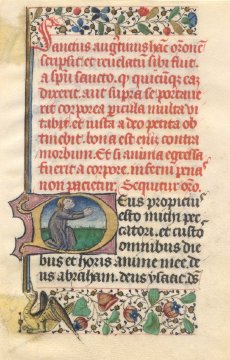 Sanctus augustinus hanc oronem
scripsit et revelatum sibi fuit
a spu sancto. q quicuqz eaz
dixerit aut supra se portaverit
rit corporea picula multa vi
tabit et iusta a deo petita ob
tinebit. bona est eni contra
morbum. Et si anima egressa
fuerit a corpore inferni pena
non pacietur. Sequitur oro.
Deus propicius
esto michi pec
catori. et custos
omnibus die
bus et horis anime mee. de
us abraham. deus ysaac. ds